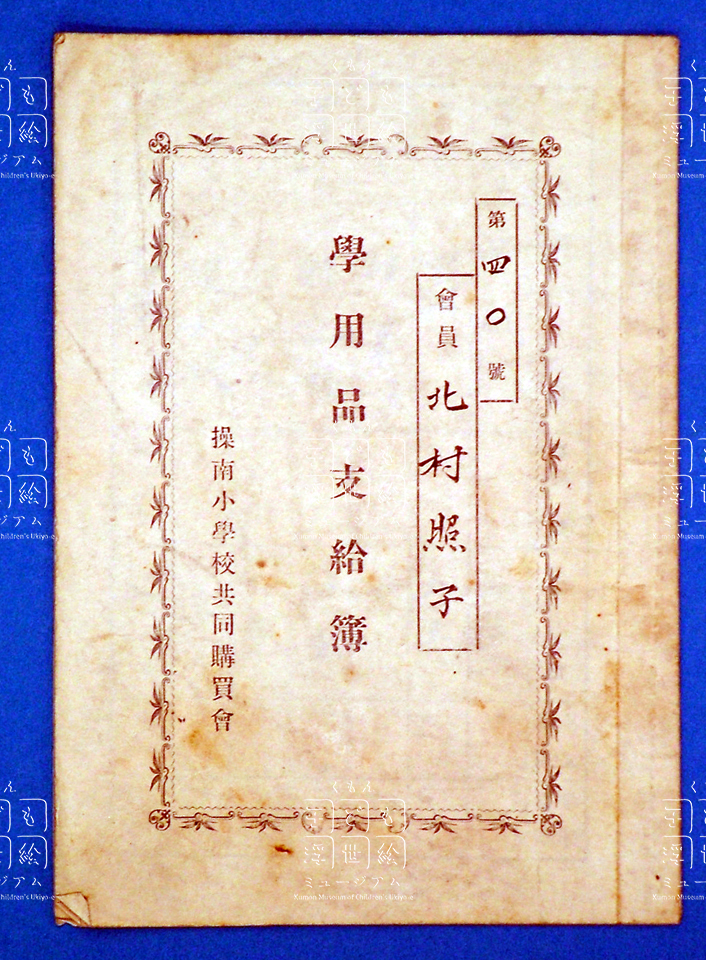 第四〇號
會員 北村照子
學用品支給簿
操南小學校共同購買會
くもん
子ども
浮世絵
ミュージアム
Kumon Museum of Children's Ukiyo-e